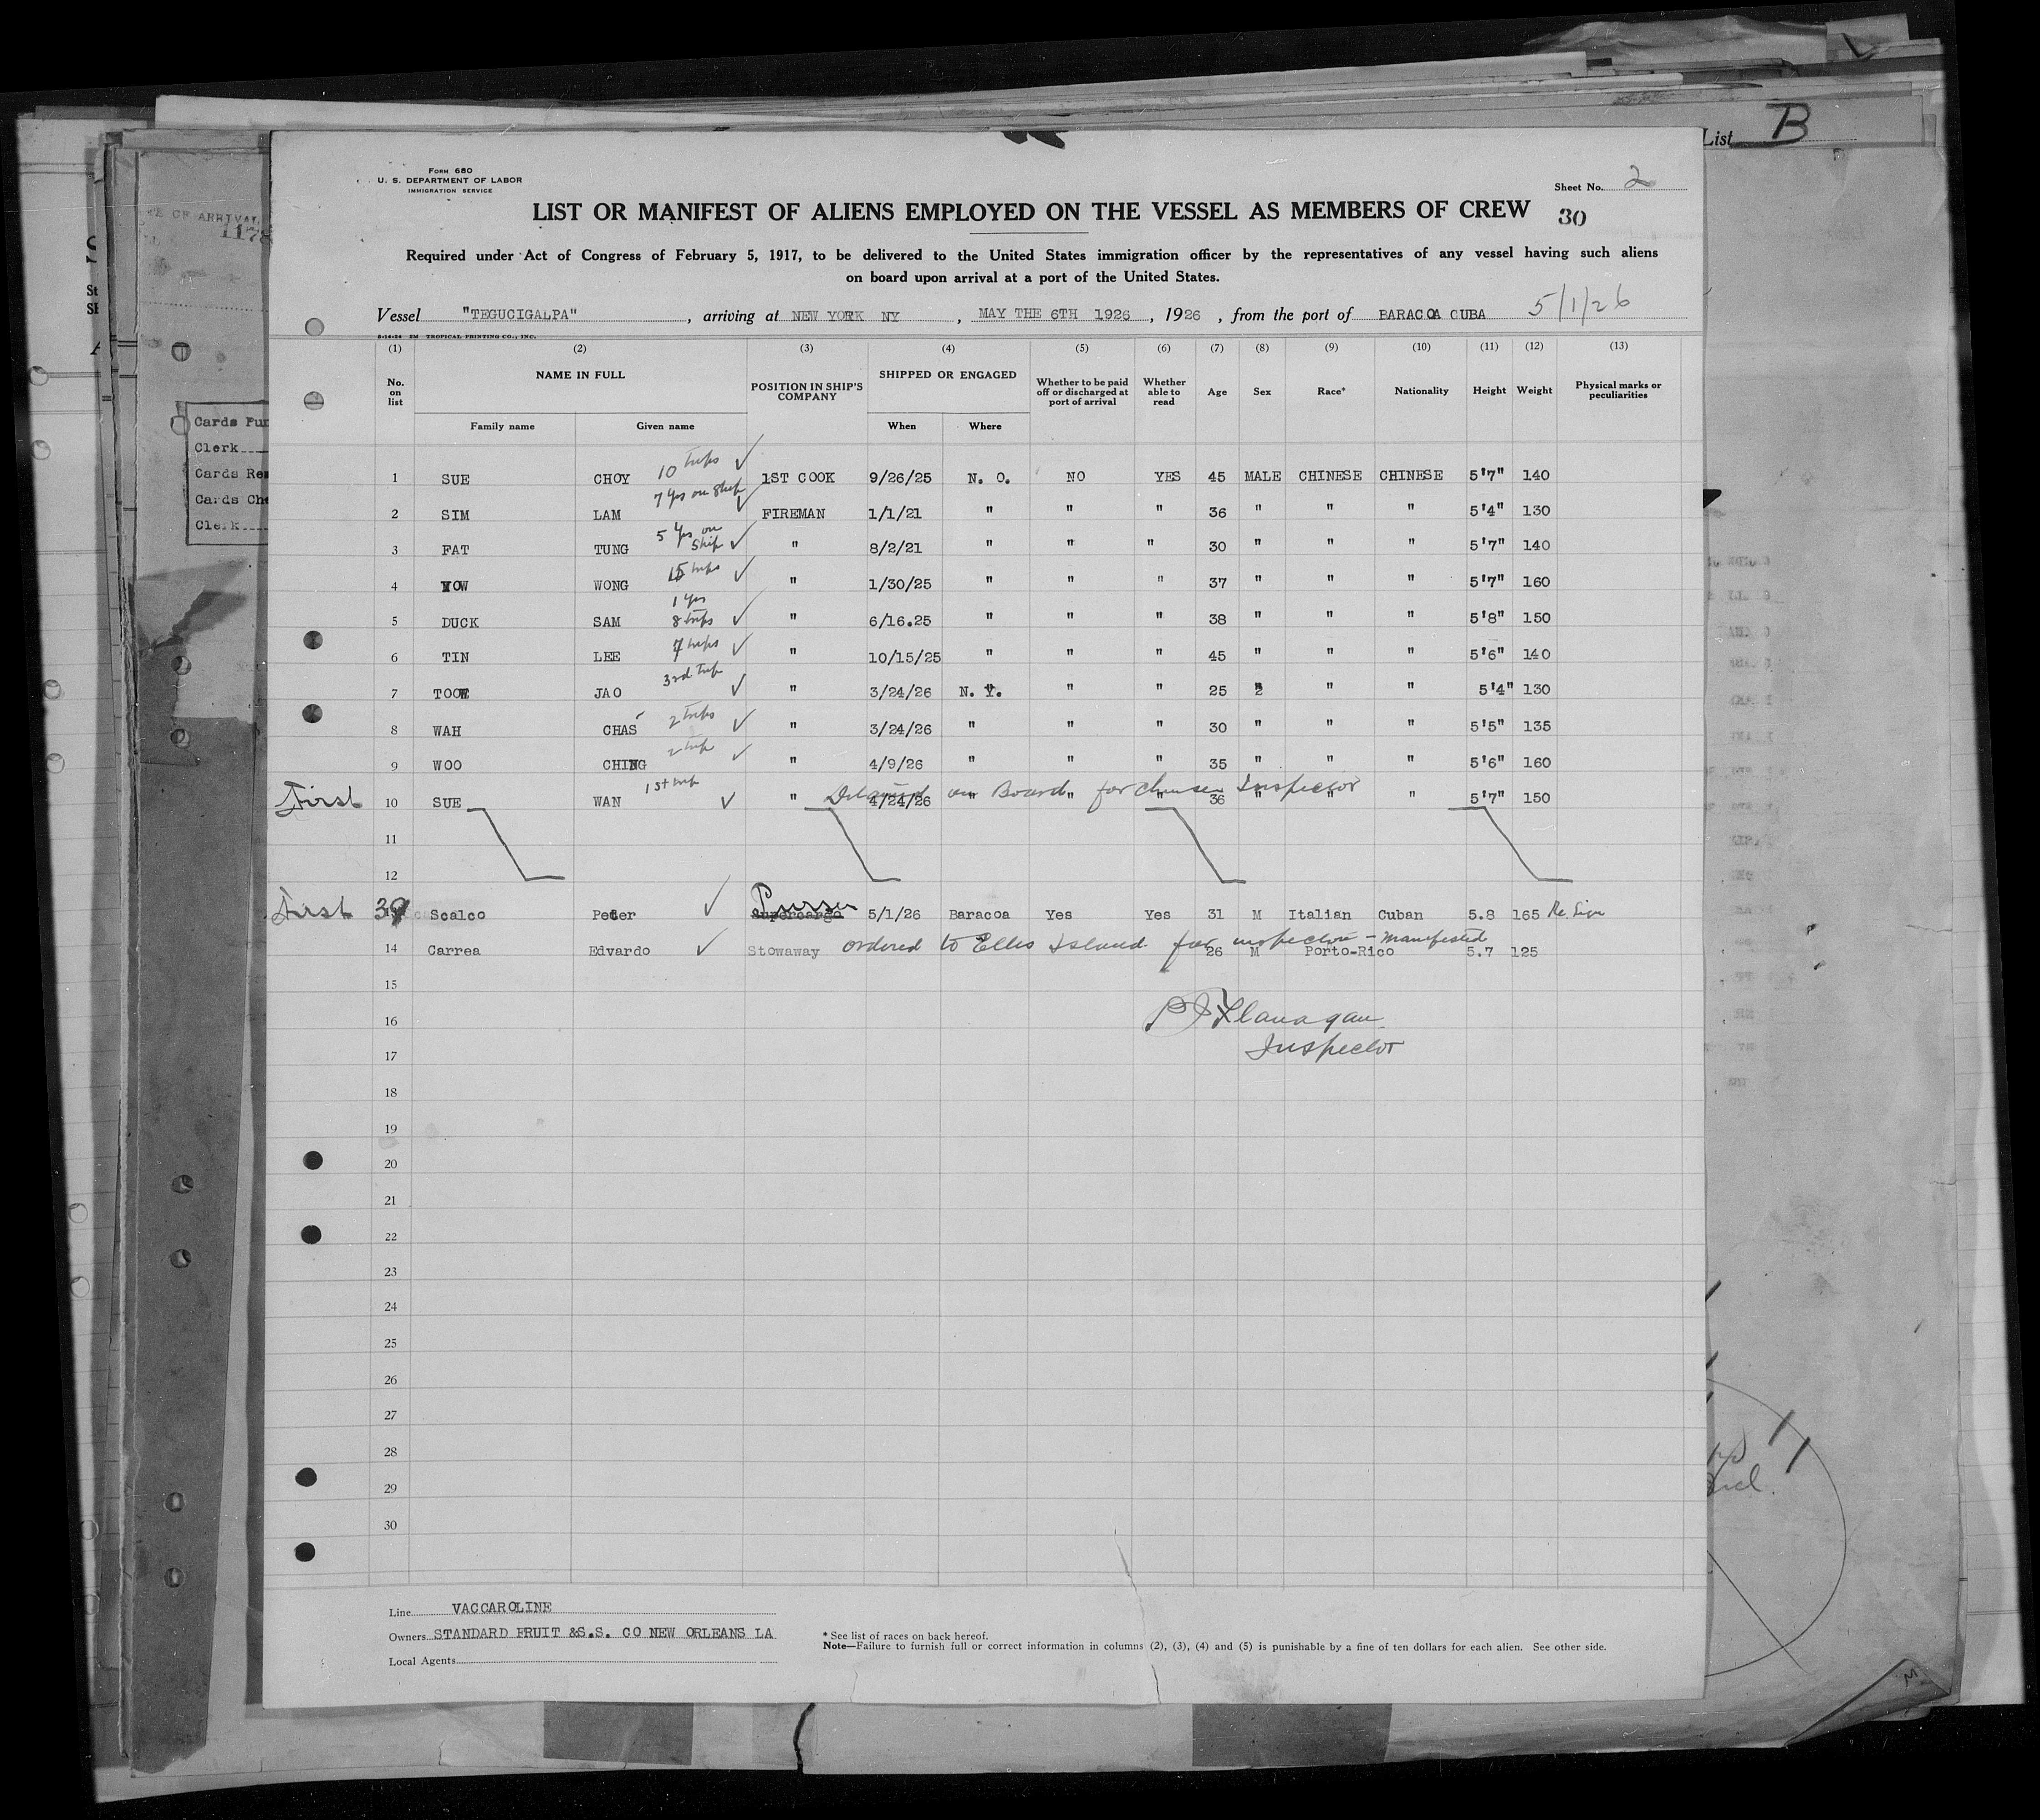 List B
FORM 680
U. S. DEPARTMENT OF LABOR
IMMIGRATION SERVICE
Sheet No. 2
LIST OR MANIFEST OF ALIENS EMPLOYED ON THE VESSEL AS MEMBERS OF CREW 30
Required under Act of Congress of February 5, 1917, to be delivered to the United States immigration officer by the representatives of any vessel having such aliens
on board upon arrival at a port of the United States.
Vessel "TEGUCIGALPA", arriving at NEW YORK NY, MAY THE 6TH 1926, 1926, from the port of BARACOA CUBA 5/1/26
TROPICAL PRINTING CO., INC.
(1) (2) (3) (4) (5) (6) (7) (8) (9) (10) (11) (12) (13)
No. on list NAME IN FULL POSITION IN SHIP'S COMPANY SHIPPED OR ENGAGED Whether to be paid off or discharged at port of arrival Whether able to read Age Sex Race* Nationality Height Weight Physical marks or peculiarities
Family name Given name When Where
1 SUE CHOY 10 trips ✓ 1ST COOK 9/26/25 N. O. NO YES 45 MALE CHINESE CHINESE 5'7" 140
2 SIM LAM 7 yrs on ship ✓ FIREMAN 1/1/21 " " " 36 " " " 5'4" 130
3 FAT TUNG 5 yrs on ship ✓ " 8/2/21 " " " 30 " " " 5'7" 140
4 YOW WONG 15 trips ✓ " 1/30/25 " " " 37 " " " 5'7" 160
5 DUCK SAM 1 yrs 8 trips ✓ " 6/16.25 " " " 38 " " " 5'8" 150
6 TIN LEE 7 trips ✓ " 10/15/25 " " " 45 " " " 5'6" 140
7 TOOW JAO 3rd trip ✓ " 3/24/26 N. Y. " " 25 " " " 5'4" 130
8 WAH CHAS 2 trips ✓ " 3/24/26 " " " 30 " " " 5'5" 135
9 WOO CHING 2 trip ✓ " 4/9/26 " " " 35 " " " 5'6" 160
First 10 SUE WAN 1st trip ✓ " 4/24/26 " " " 36 " " " 5'7" 150
Detained on Board for Chinese Inspector
11
12
First 39 Scalco Peter ✓ Supercargo Purser 5/1/26 Baracoa Yes Yes 31 M Italian Cuban 5.8 165
14 Carrea Edvardo ✓ Stowaway ordered to Ellis Island for inspection - manifested 26 M Porto-Rico 5.7 125
15
16 P J Flanagan
17 Inspector
18
19
20
21
22
23
24
25
26
27
28
29
30
Line VACCAROLINE
Owners STANDARD FRUIT &S.S. CO NEW ORLEANS LA
Local Agents
* See list of races on back hereof.
Note—Failure to furnish full or correct information in columns (2), (3), (4) and (5) is punishable by a fine of ten dollars for each alien. See other side.
Cards Fur
Clerk
Cards Rem
Cards Che
Clerk